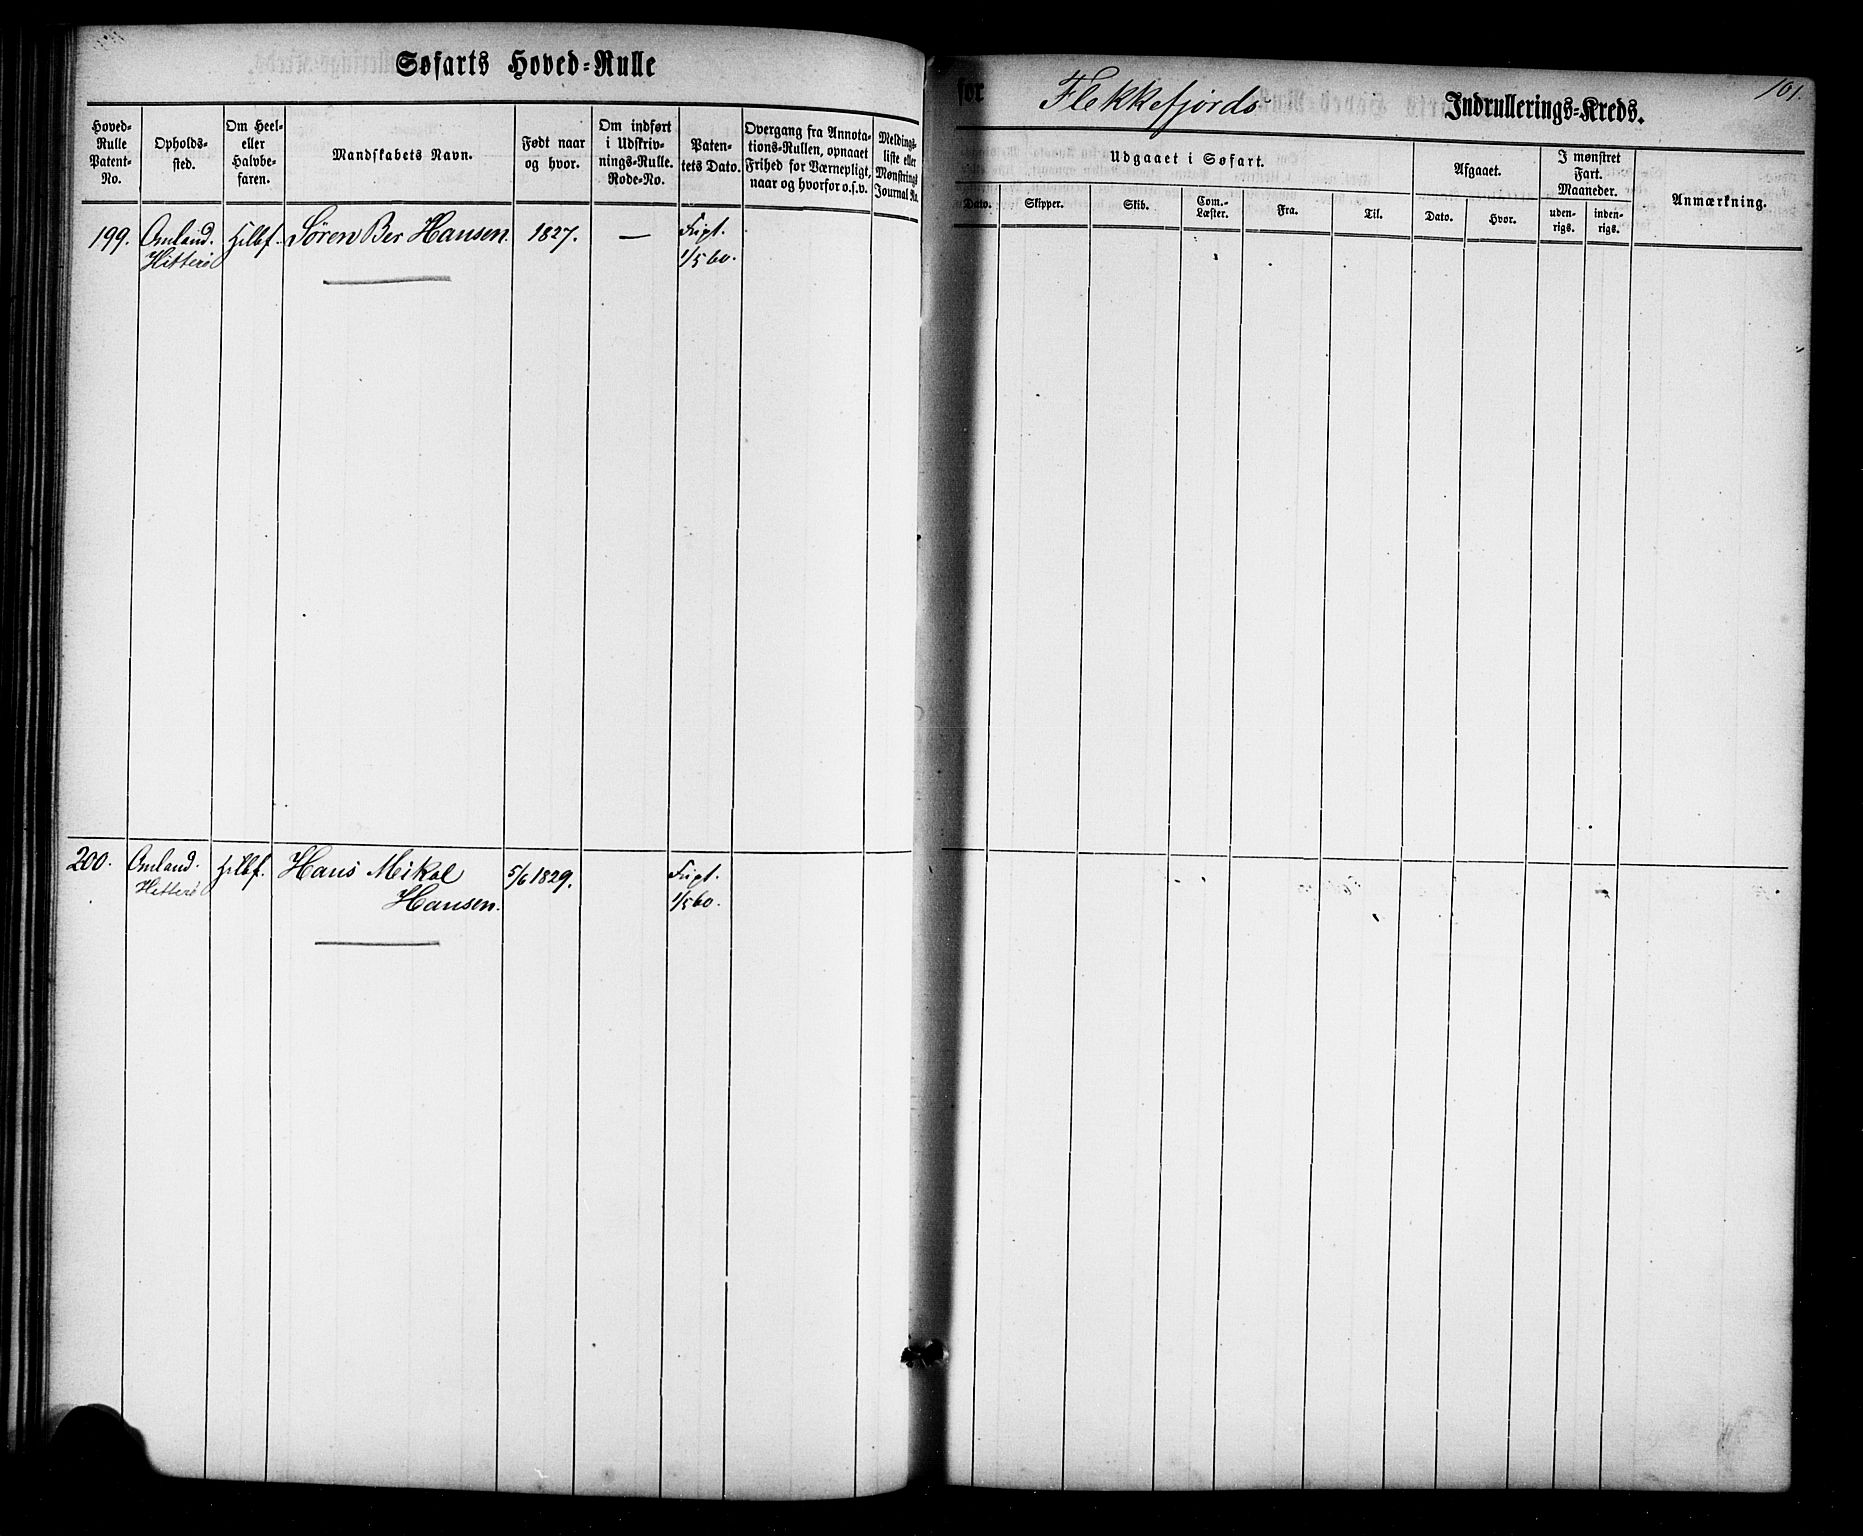 Søfarts Hoved-Rulle
for Flekkefjords Indrullerings-Kreds.
101.
Hoved-
Rulle
Patent-
No.
Opholds-
sted.
Om Heel-
eller
Halvbe-
faren.
Mandskabets Navn.
Født naar
og hvor.
Om indført
i Udskriv-
nings-Rulle.
Rode-No.
Paten-
tets Dato.
Overgang fra Annota-
tions-Rullen, opnaaet
Frihed for Værnepligt,
naar og hvorfor o.s.v.
Meldings-
liste eller
Mønstrings
Journal No.
Udgaaet i Søfart.
Dato.
Skipper.
Skib.
Com.-
Læster.
Fra.
Til.
Afgaaet.
Dato.
Hvor.
I mønstret
Fart.
Maaneder.
uden-
rigs.
inden-
rigs.
Anmærkning.
199. Omland. Søren Ber Hansen. 1827. —
Hitterö 1/5 60.
200. Omland. Hans Mikal 5/6 1829.
Hitterö Hansen. 1/5 60.